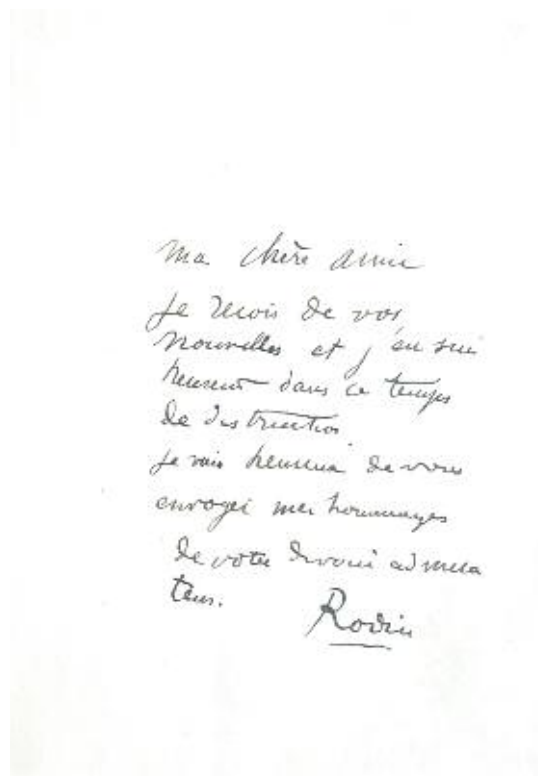 Ma chère amie
Je reçois de vos
nouvelles et j'en suis
heureux dans ce temps
de destruction
Je suis heureux de vous
envoyer mes hommages
de votre dévoué admira
teur.
Rodin